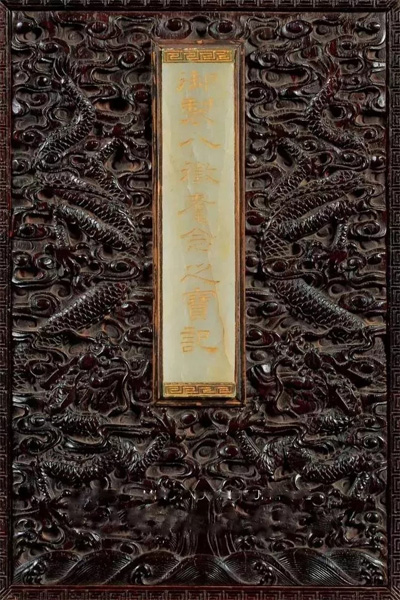 御製八徵耄念之寶記